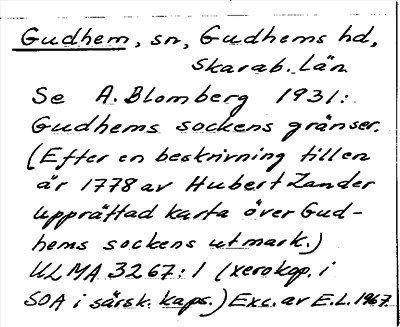 Gudhem, sn, Gudhems hd,
Skarab. län
Se A. Blomberg 1931:
Gudhems sockens gränser.
(Efter en beskrivning till en
år 1778 av Hubert Zander
upprättad karta över Gud-
hems sockens utmark.)
ULMA 3267:1 (xerokop. i
SOA i särsk. kaps.) Exc. av E.L. 1967